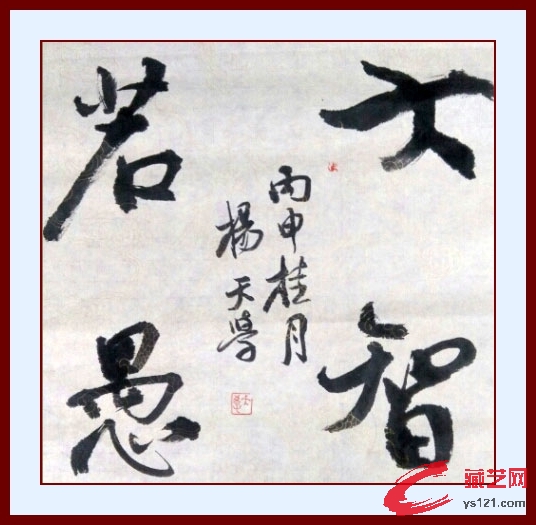 大智
若愚
丙申桂月
楊天學
藏艺网
ys121.com